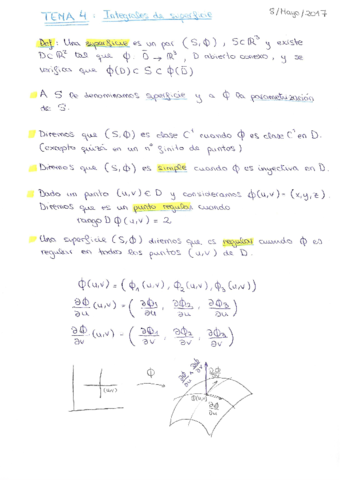 TEMA 4: Integrales de superficie
5/Mayo/2017
Def: Una superficie es un par (S, Φ), S⊂ℝ³ y existe
D⊂ℝ² tal que Φ: D̄ → ℝ³, D abierto conexo, y se
verifica que Φ(D) ⊂ S ⊂ Φ(D̄)
A S la denominamos superficie y a Φ la parametrización
de S.
Diremos que (S, Φ) es clase C¹ cuando Φ es clase C¹ en D.
(excepto quizás en un nº finito de puntos)
Diremos que (S, Φ) es simple cuando Φ es inyectiva en D.
Dado un punto (u,v) ∈ D y consideramos Φ(u,v) = (x,y,z).
Diremos que es un punto regular cuando
rango DΦ(u,v) = 2
Una superficie (S, Φ) diremos que es regular cuando Φ es
regular en todos los puntos (u,v) de D.
Φ(u,v) = (Φ₁(u,v), Φ₂(u,v), Φ₃(u,v))
∂Φ/∂u (u,v) = (∂Φ₁/∂u, ∂Φ₂/∂u, ∂Φ₃/∂u)
∂Φ/∂v (u,v) = (∂Φ₁/∂v, ∂Φ₂/∂v, ∂Φ₃/∂v)
(u,v)
Φ
Φ(u,v)
∂Φ/∂u